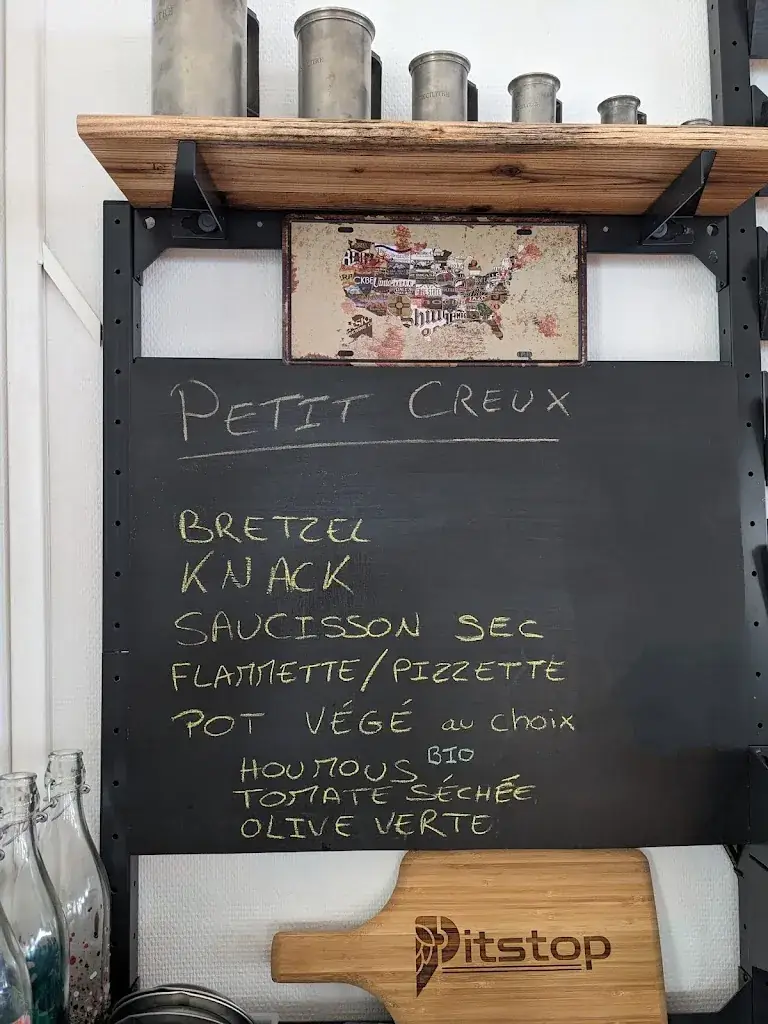 PETIT CREUX
BRETZEL
KNACK
SAUCISSON SEC
FLAMMETTE/PIZZETTE
POT VÉGÉ au choix
HOUMOUS BIO
TOMATE SÉCHÉE
OLIVE VERTE
Pitstop